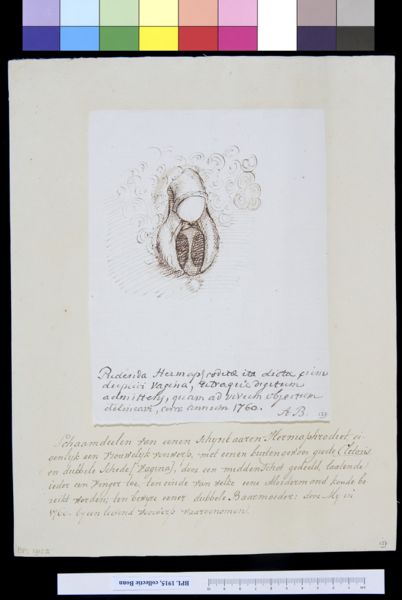 Pudenda Hermaphroditæ ita dicta cum
duplici vagina, utraque digitum
admittens, quam ad vivum objectum
delineavi, circa annum 1760.
A.B.
Schaamdeelen van eenen schijnbaaren Hermaphrodiet, ei-
genlijk een vrouwelijk voorwerp, met eenen buitengewoon groote Clitoris
en dubbele Schede [Vagina], door een middenschot gedeeld, laatende
ieder een vinger toe, ten einde van welke eene Moedermond konde be-
reikt worden; ten bewyze eener dubbele Baarmoeder: door My in
1760. by een levend voorwerp waargenomen.
BPL 1915, collectie Bonn